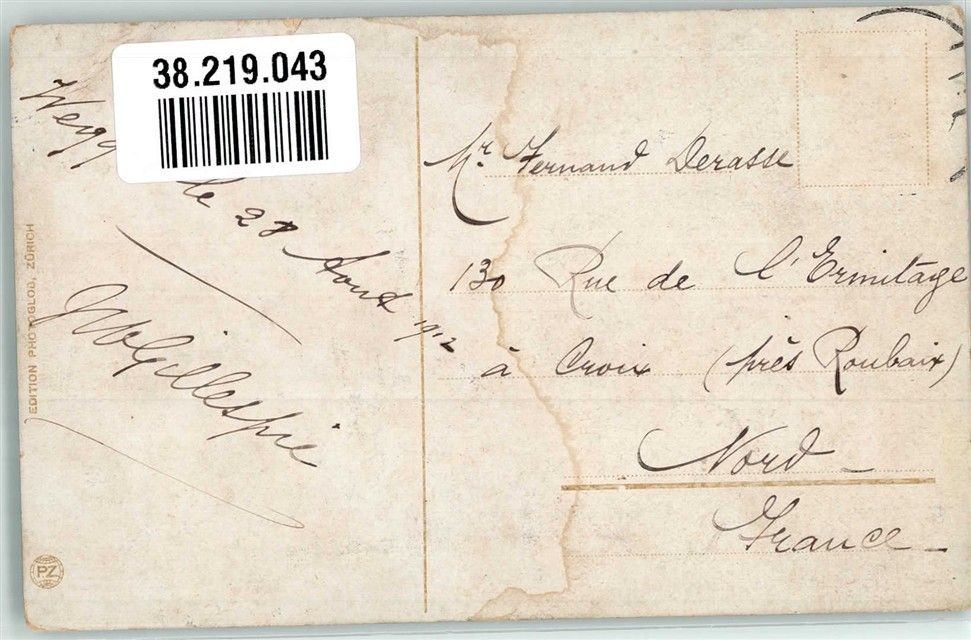 38.219.043
le 28 Aout 1912
Gillespie
EDITION PHOTOGLOB, ZÜRICH
P.Z
Mr Fernand Derasse
130 Rue de l'Ermitage
à Croix (près Roubaix)
Nord
France